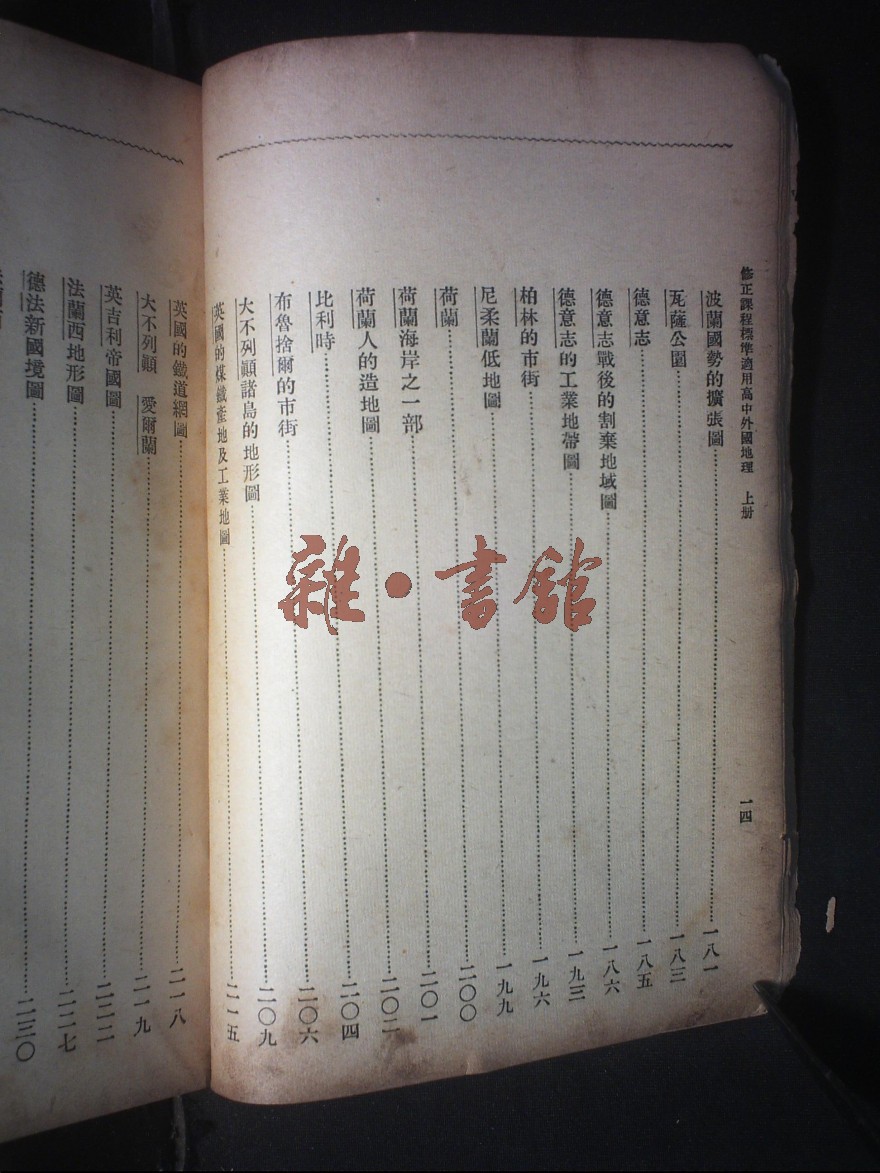 修正課程標準適用高中外國地理 上册
一四
波蘭國勢的擴張圖…一八一
瓦薩公園…一八三
德意志…一八五
德意志戰後的割棄地域圖…一八六
德意志的工業地帶圖…一九三
柏林的市街…一九六
尼柔蘭低地圖…一九九
荷蘭…二〇〇
荷蘭海岸之一部…二〇一
荷蘭人的造地圖…二〇二
比利時…二〇四
布魯捨爾的市街…二〇六
大不列顚諸島的地形圖…二〇九
英國的煤鐵產地及工業地圖…二一五
英國的鐵道網圖…二一八
大不列顚 愛爾蘭…二一九
英吉利帝國圖…二二二
法蘭西地形圖…二二七
德法新國境圖…二三〇
雜·書館